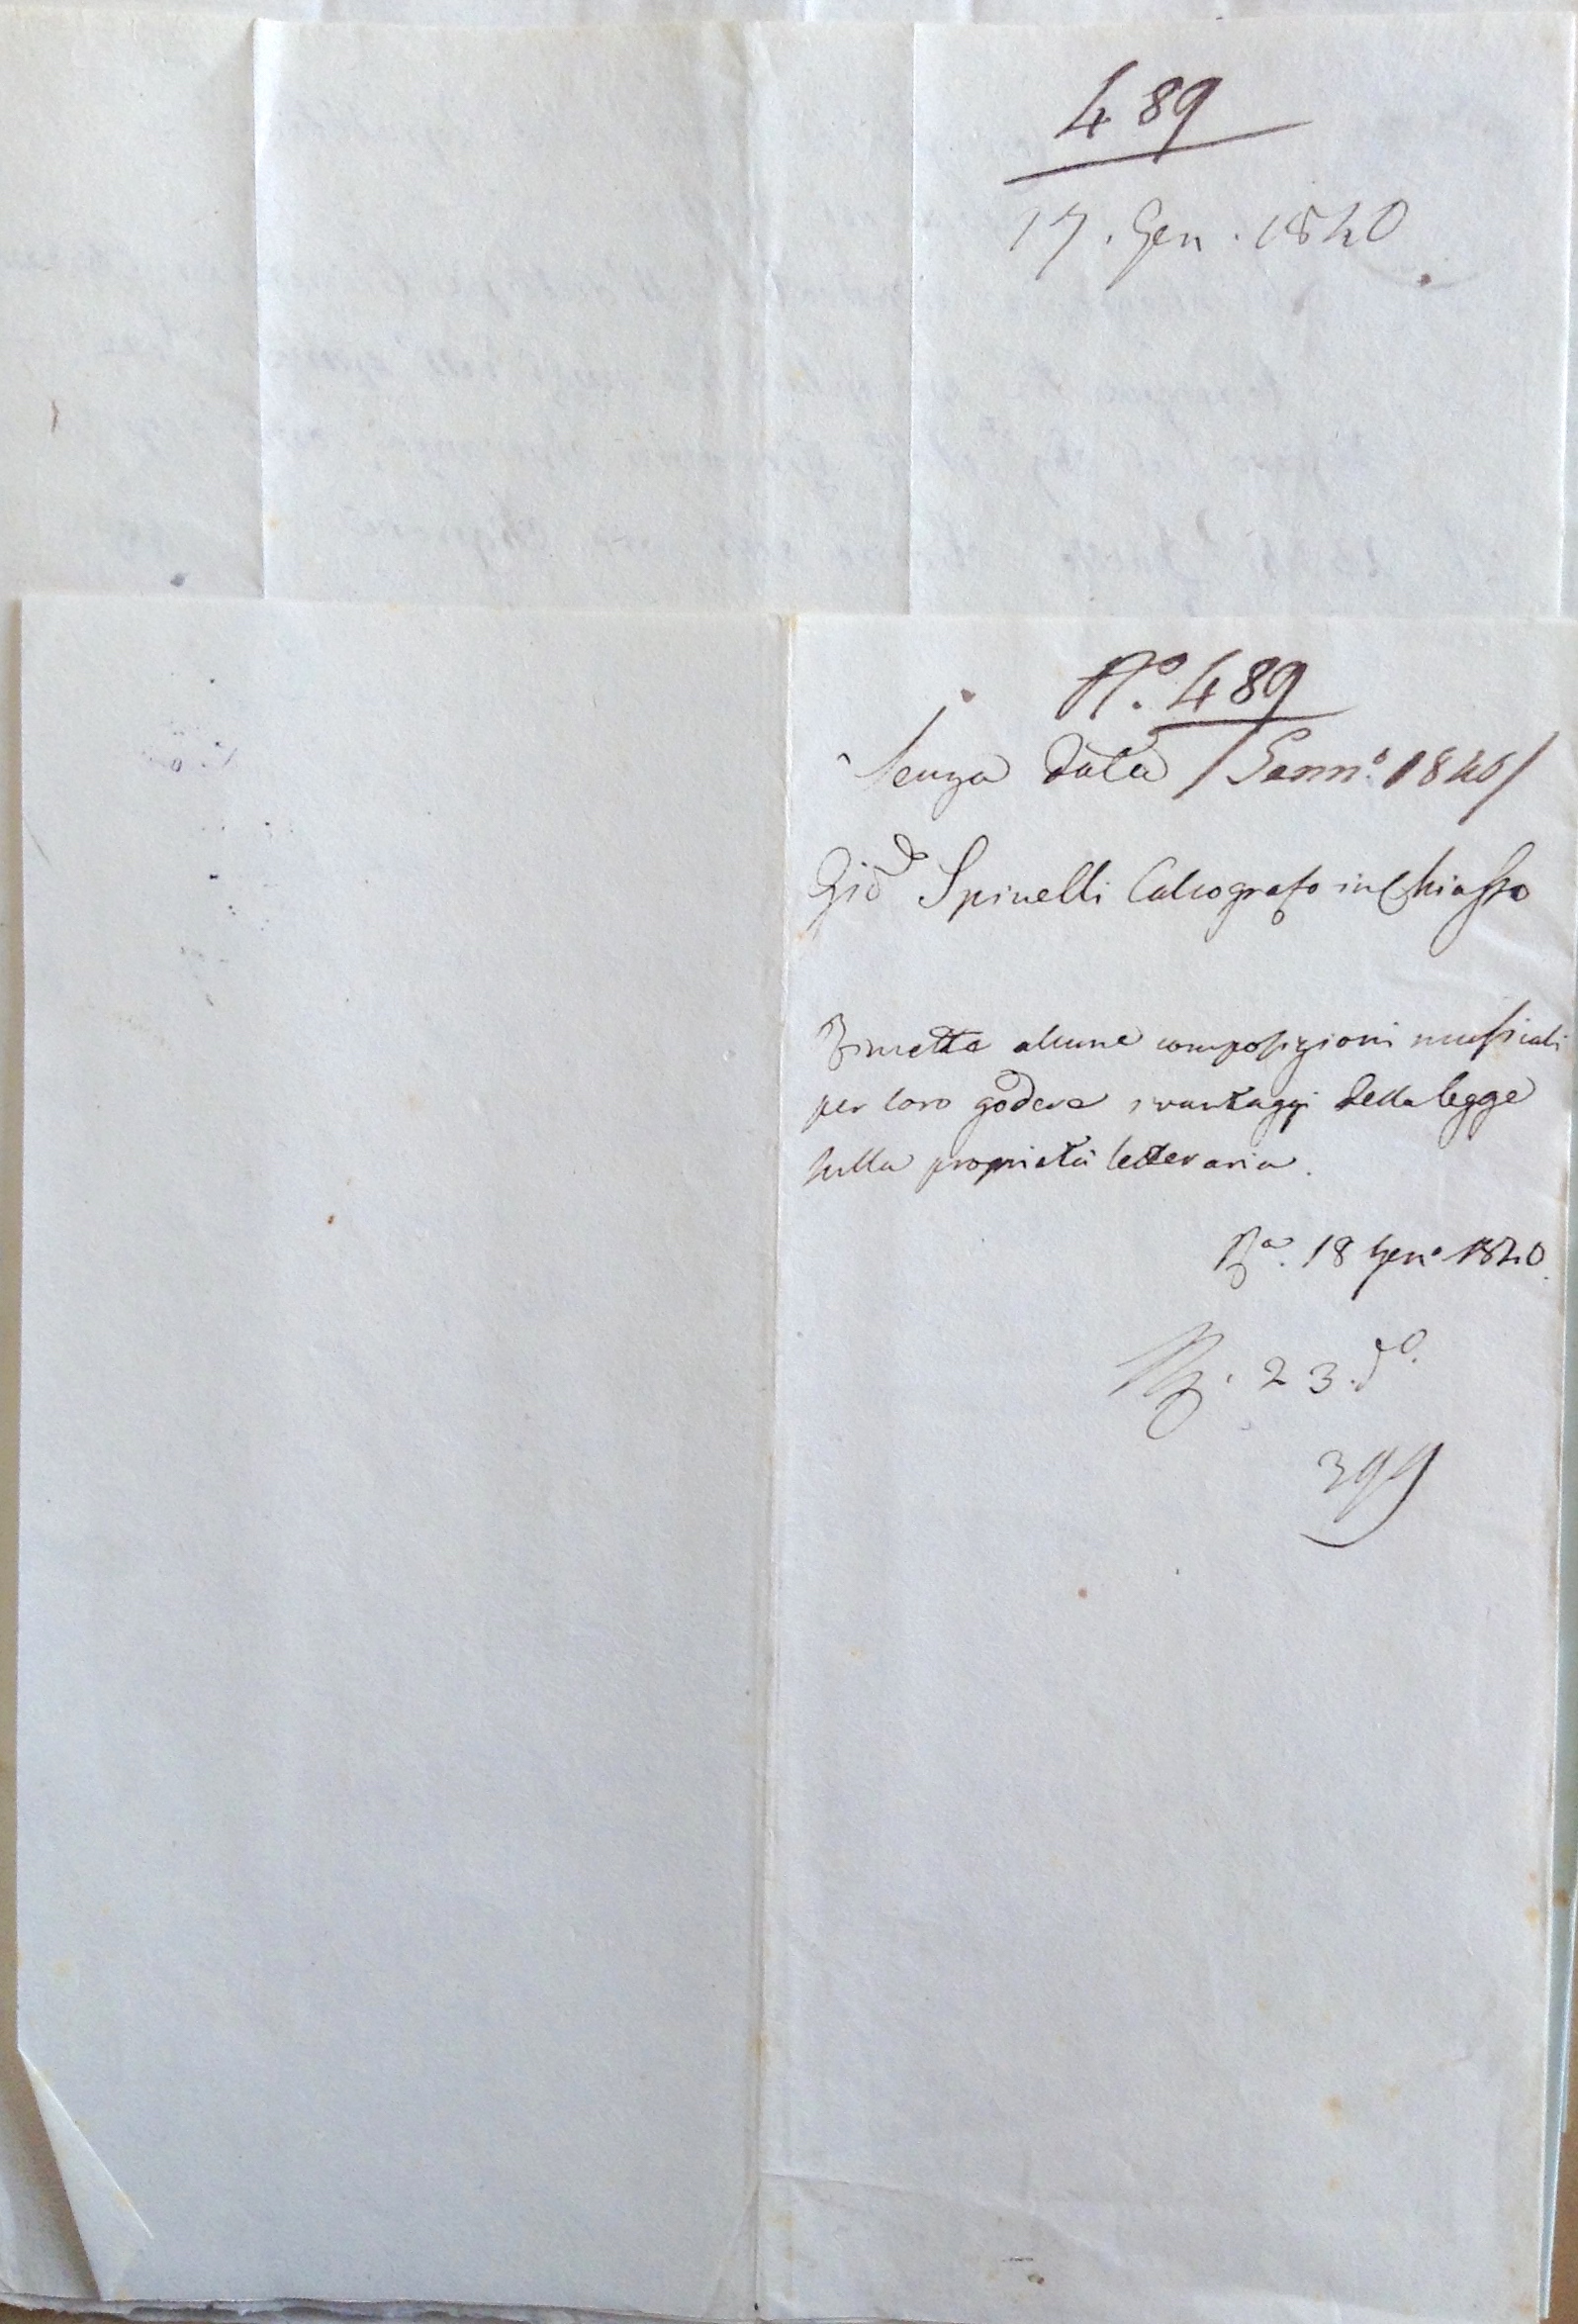 489
17. Gen. 1840
N.º 489
Senza data / Genn.º 1840 /
Gio Spinelli Calcografo in Chiasso
Rimette alcune composizioni musicali
per loro godere i vantaggi della legge
sulla proprietà letteraria.
R.ª 18 Gen.º 1840.
23 d.º
399